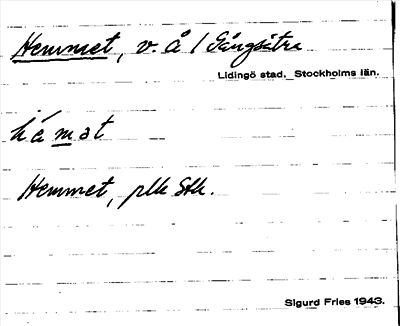 Hemmet, v. å / Gångsätra
Lidingö stad. Stockholms län.
hémat
Hemmet, plk Stk.
Sigurd Fries 1943.